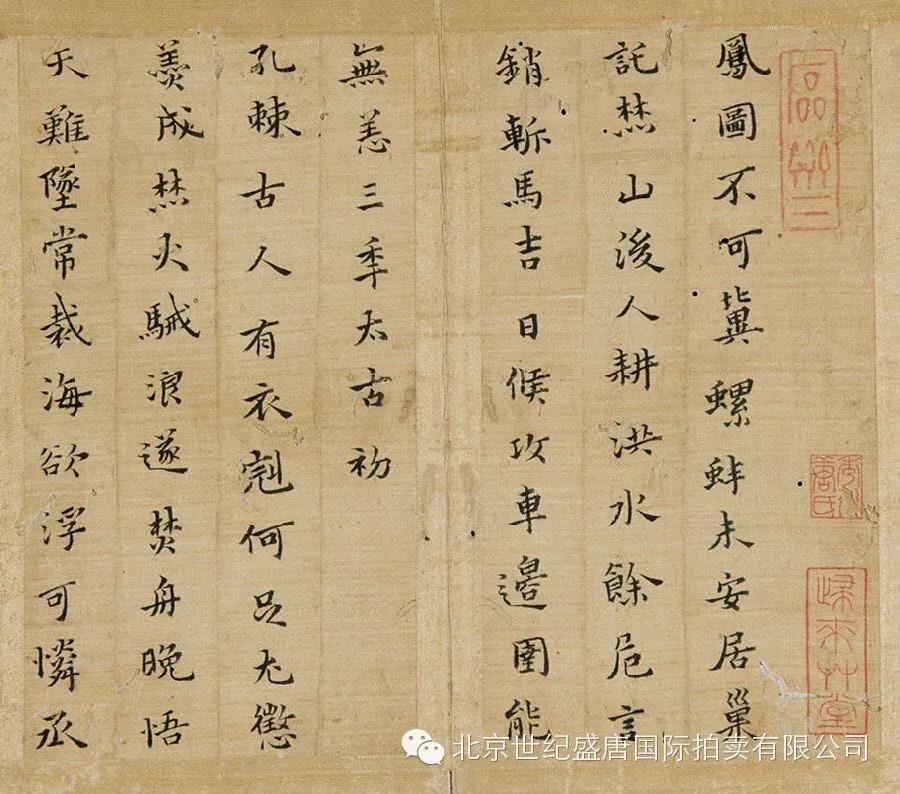 鳳圖不可冀螺蚌未安居巢
託焚山後人耕洪水餘危言
銷斬馬吉日候攻車邊圉能
無恙三秊太古初
孔棘古人有衣冠何㠯尤懲
羹成焚火駴浪遂焚舟晚悟
天難墜常裁海欲浮可憐丞
歸來艸堂
北京世纪盛唐国际拍卖有限公司